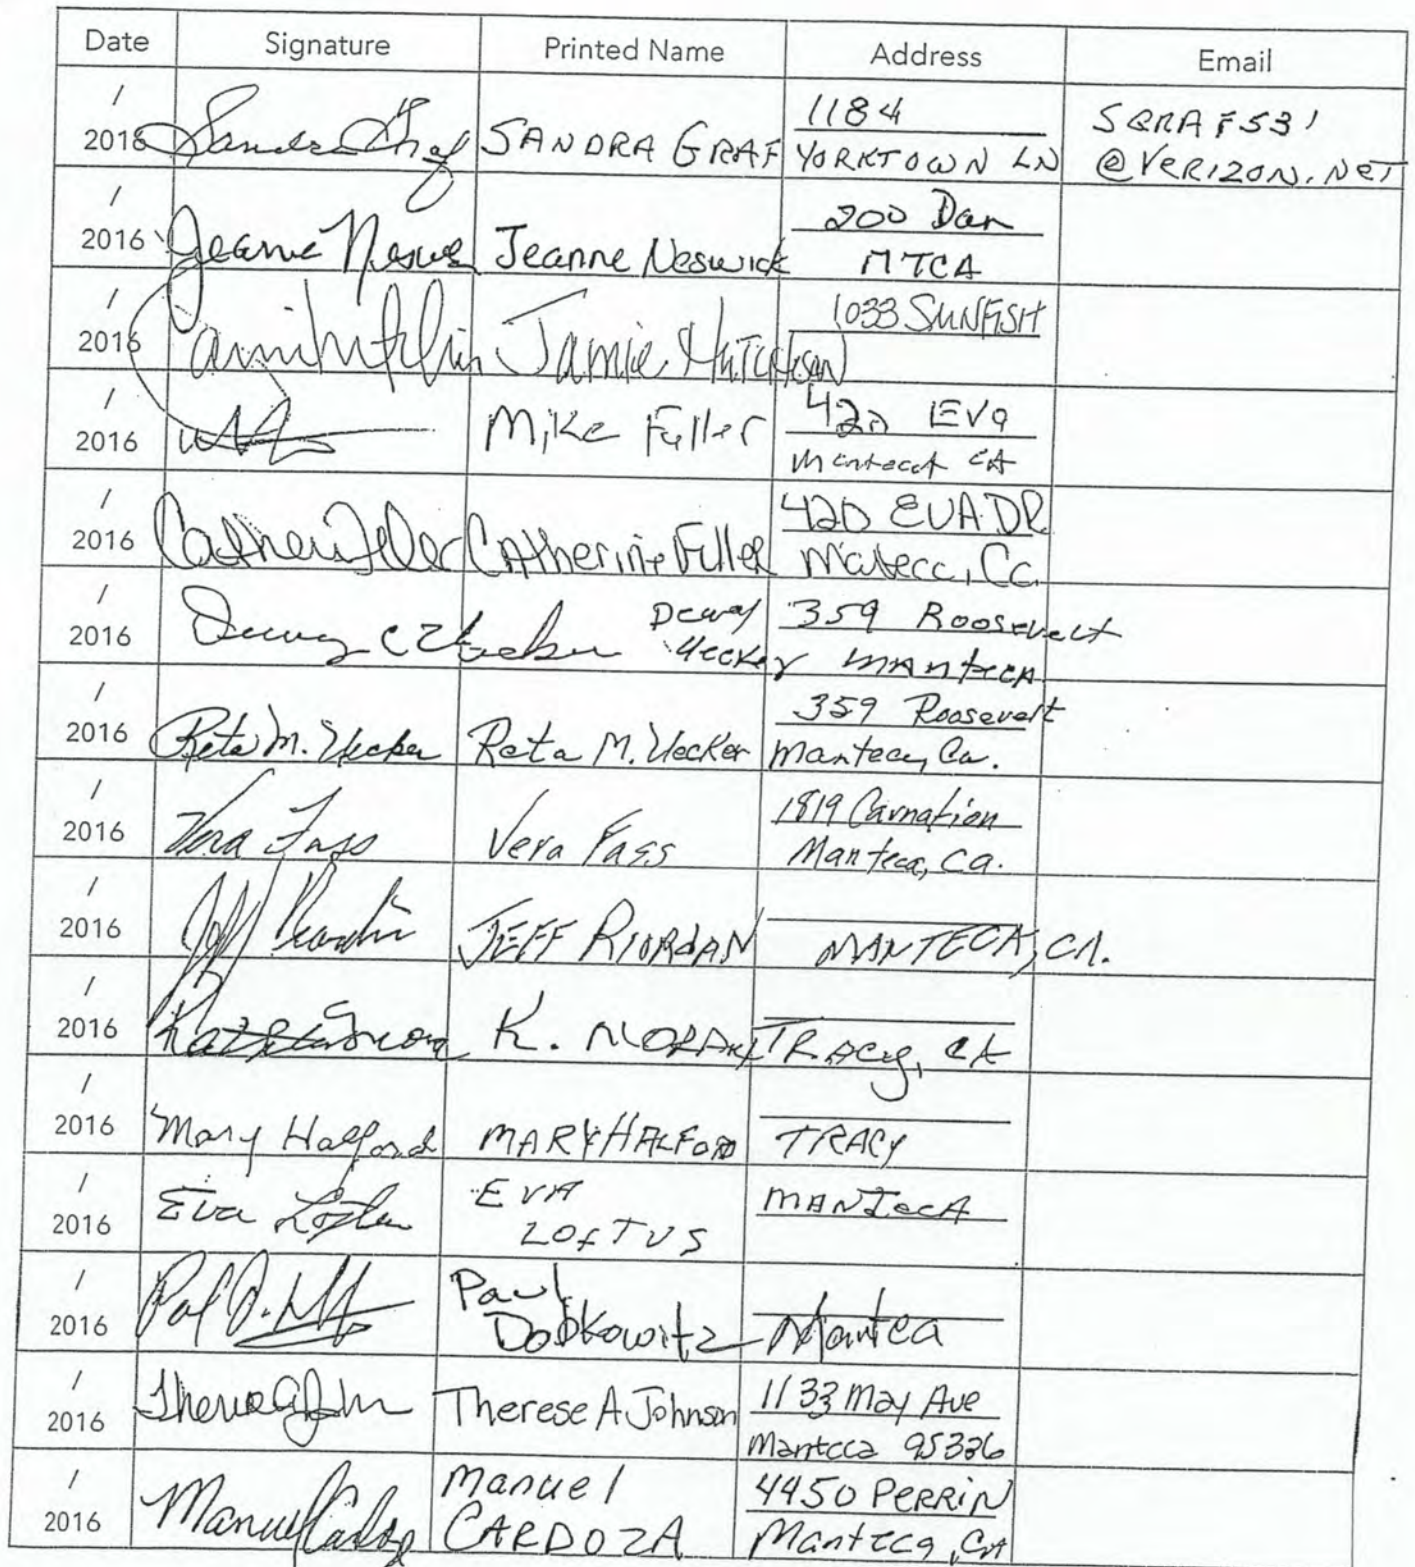 Date Signature Printed Name Address Email
/
2016 Sandra Graf SANDRA GRAF 1184
YORKTOWN LN
@VERIZON.NET
/
2016 Jeanne Neswick 200 Dan
MTCA
/
2016 Jamie 1033 SUNFISH
/
2016 Mike Fuller 420 EVA
Manteca CA
/
2016 Catherine Fuller 420 EVA DR
Manteca, Ca.
/
2016 Dewey C Uecker Dewey
Uecker
359 Roosevelt
MANTECA
/
2016 Reta M. Uecker Reta M. Uecker 359 Roosevelt
Manteca, Ca.
/
2016 Vera Fass Vera Fass 1819 Carnation
Manteca, Ca.
/
2016 Jeff Riordan JEFF RIORDAN MANTECA, CA.
/
2016 K. MORAN TRACY, CA
/
2016 Mary Halford MARY HALFORD TRACY
/
2016 Eva Loftus EVA
LOFTUS
MANTECA
/
2016 Paul
Dobkowitz
Manteca
/
2016 Therese A Johnson 1133 May Ave
Manteca 95336
/
2016 Manuel Cardoza Manuel
CARDOZA
4450 PERRIN
Manteca, CA